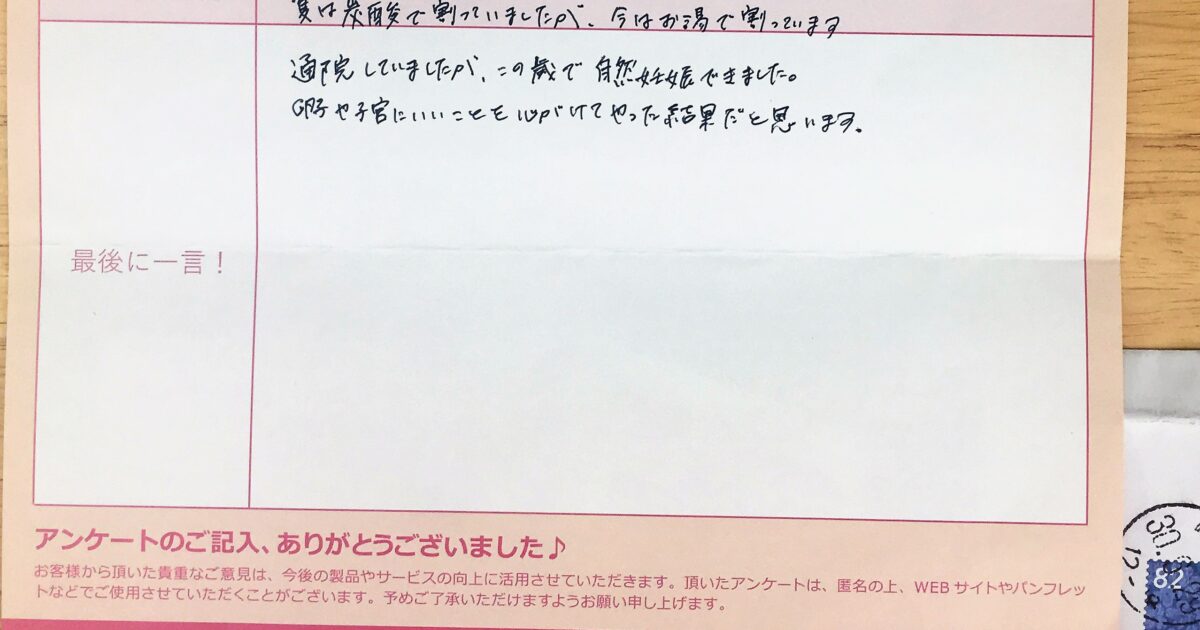 夏は炭酸で割っていましたが、今はお湯で割っています
通院していましたが、この歳で自然妊娠できました。
卵子や子宮にいいことを心がけてやった結果だと思います。
最後に一言!
アンケートのご記入、ありがとうございました♪
お客様から頂いた貴重なご意見は、今後の製品やサービスの向上に活用させていただきます。頂いたアンケートは、匿名の上、WEBサイトやパンフレッ
トなどでご使用させていただくことがございます。予めご了承いただけますようお願い申し上げます。
30.
12-
82